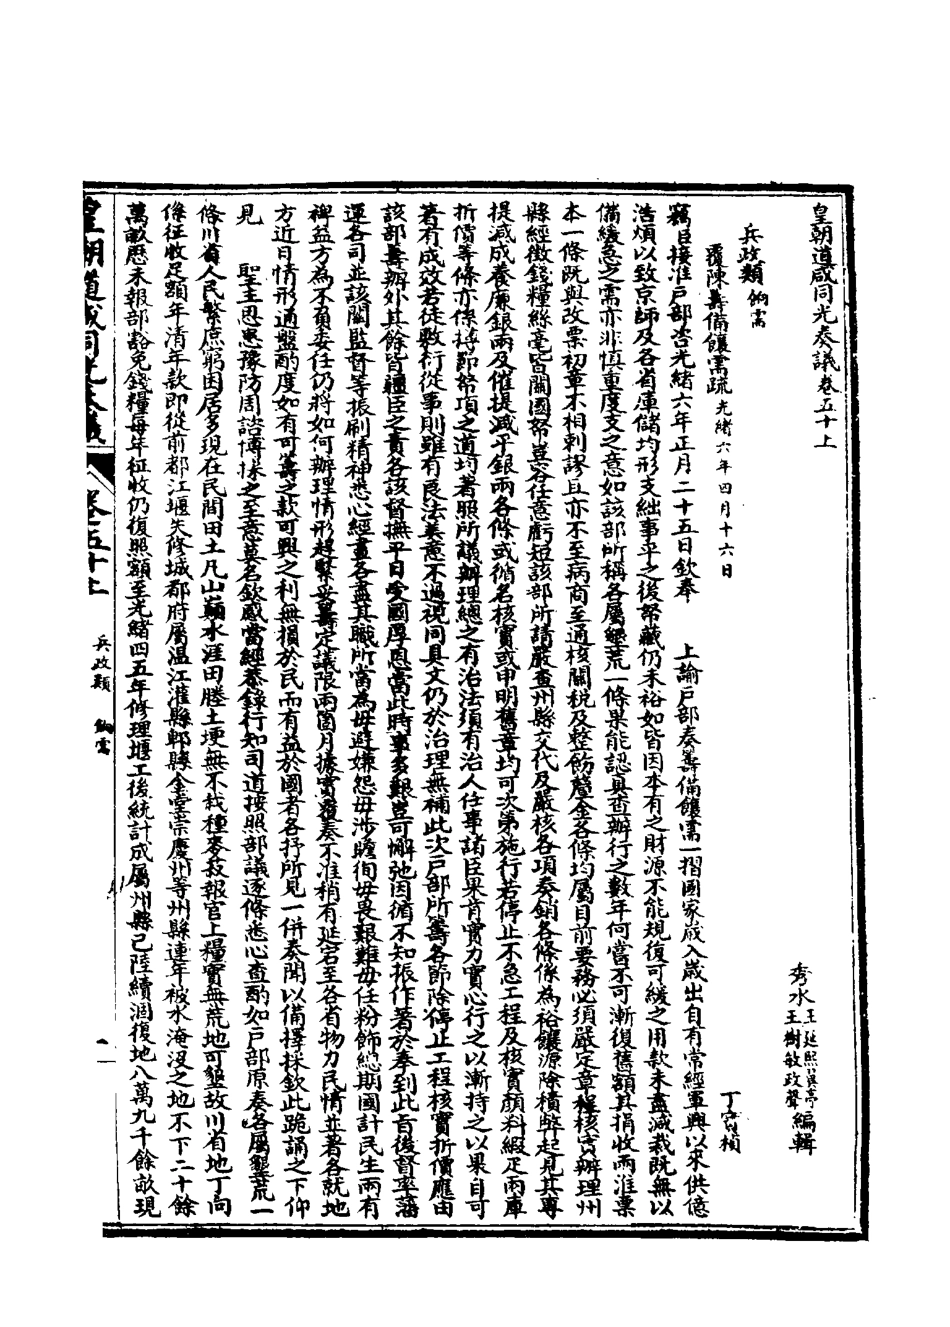 皇朝道咸同光奏議卷五十上
秀水王延熙眞亭 王樹敏政聲 編輯
兵政類 餉需
覆陳籌備饟需疏 光緒六年四月十六日 丁寶楨
竊臣接准戶部咨光緒六年正月二十五日欽奉 上諭戶部奏籌備饟需一摺國家歲入歲出自有常經軍興以來供億
浩煩以致京師及各省庫儲均形支絀事平之後帑藏仍未裕如皆因本有之財源不能規復可緩之用款未盡減裁既無以
備緩急之需亦非慎重度支之意如該部所稱各屬墾荒一條果能認眞查辦行之數年何嘗不可漸復舊額其捐收兩淮票
本一條既與改票初章不相剌謬且亦不至病商至通核關稅及整飭釐金各條均屬目前要務必須嚴定章程核實辦理州
縣經徵錢糧絲毫皆關國帑豈容任意虧短該部所請嚴查州縣交代及嚴核各項奏銷各條係為裕饟源除積弊起見其專
提減成養廉銀兩及催提減平銀兩各條或循名核實或申明舊章均可次第施行若停止不急工程及核實顏料緞疋兩庫
折價等條亦係撙節帑項之道均著照所議辦理總之有治法須有治人任事諸臣果肯實力實心行之以漸持之以果自可
著有成效若徒敷衍從事則雖有良法美意不過視同具文仍於治理無補此次戶部所籌各節除停止工程核實折價應由
該部籌辦外其餘皆疆臣之責各該督撫平日受國厚恩當此時事多艱豈可懈弛因循不知振作著於奉到此旨後督率藩
運各司並該關監督等振刷精神悉心經畫各盡其職所當為毋避嫌怨毋涉瞻徇毋畏艱難毋任粉飾總期國計民生兩有
裨益方為不負委任仍將如何辦理情形趕緊妥籌定議限兩個月據實覆奏不准稍有延宕至各省物力民情並著各就地
方近日情形通盤酌度如有可籌之款可興之利無損於民而有益於國者各抒所見一併奏聞以備擇採欽此跪誦之下仰
見 聖主思患豫防周諮博採之至意莫名欽感當經恭錄行知司道按照部議逐條悉心查酌如戶部原奏各屬墾荒一
條川省人民繁庶窮困居多現在民間田土凡山巔水涯田塍土埂無不栽種麥菽報官上糧實無荒地可墾故川省地丁向
係征收足額年清年款即從前都江堰失修城都府屬溫江灌縣郫縣金堂崇慶州等州縣連年被水淹沒之地不下二十餘
萬畝歷未報部豁免錢糧每年征收仍復照額至光緒四五年修理堰工後統計成屬州縣已陸續涸復地八萬九千餘畝現
皇朝道咸同光奏議
卷五十上
兵政類 餉需
一